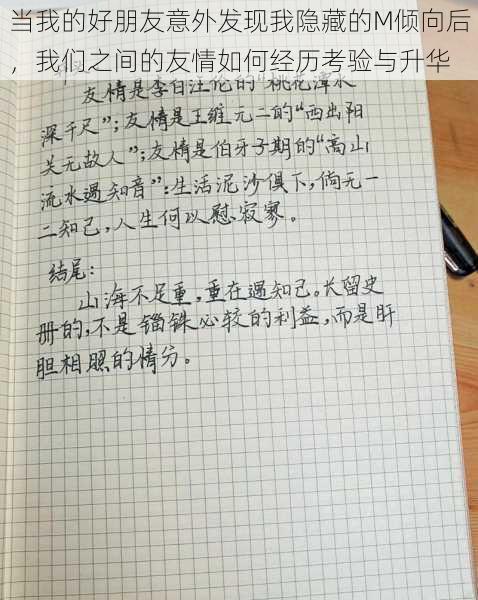 当我的好朋友意外发现我隐藏的M倾向后
，我们之间的友情如何经历考验与升华
友情是李白汪伦的“桃花潭水
深千尺”;友情是王维元二的“西出阳
关无故人”;友情是伯牙子期的“高山
流水遇知音”:生活泥沙俱下,倘无一
二知己,人生何以慰寂寥。
结尾:
山海不足重,重在遇知己。长留史
册的,不是锱铢必较的利益,而是肝
胆相照的情分。